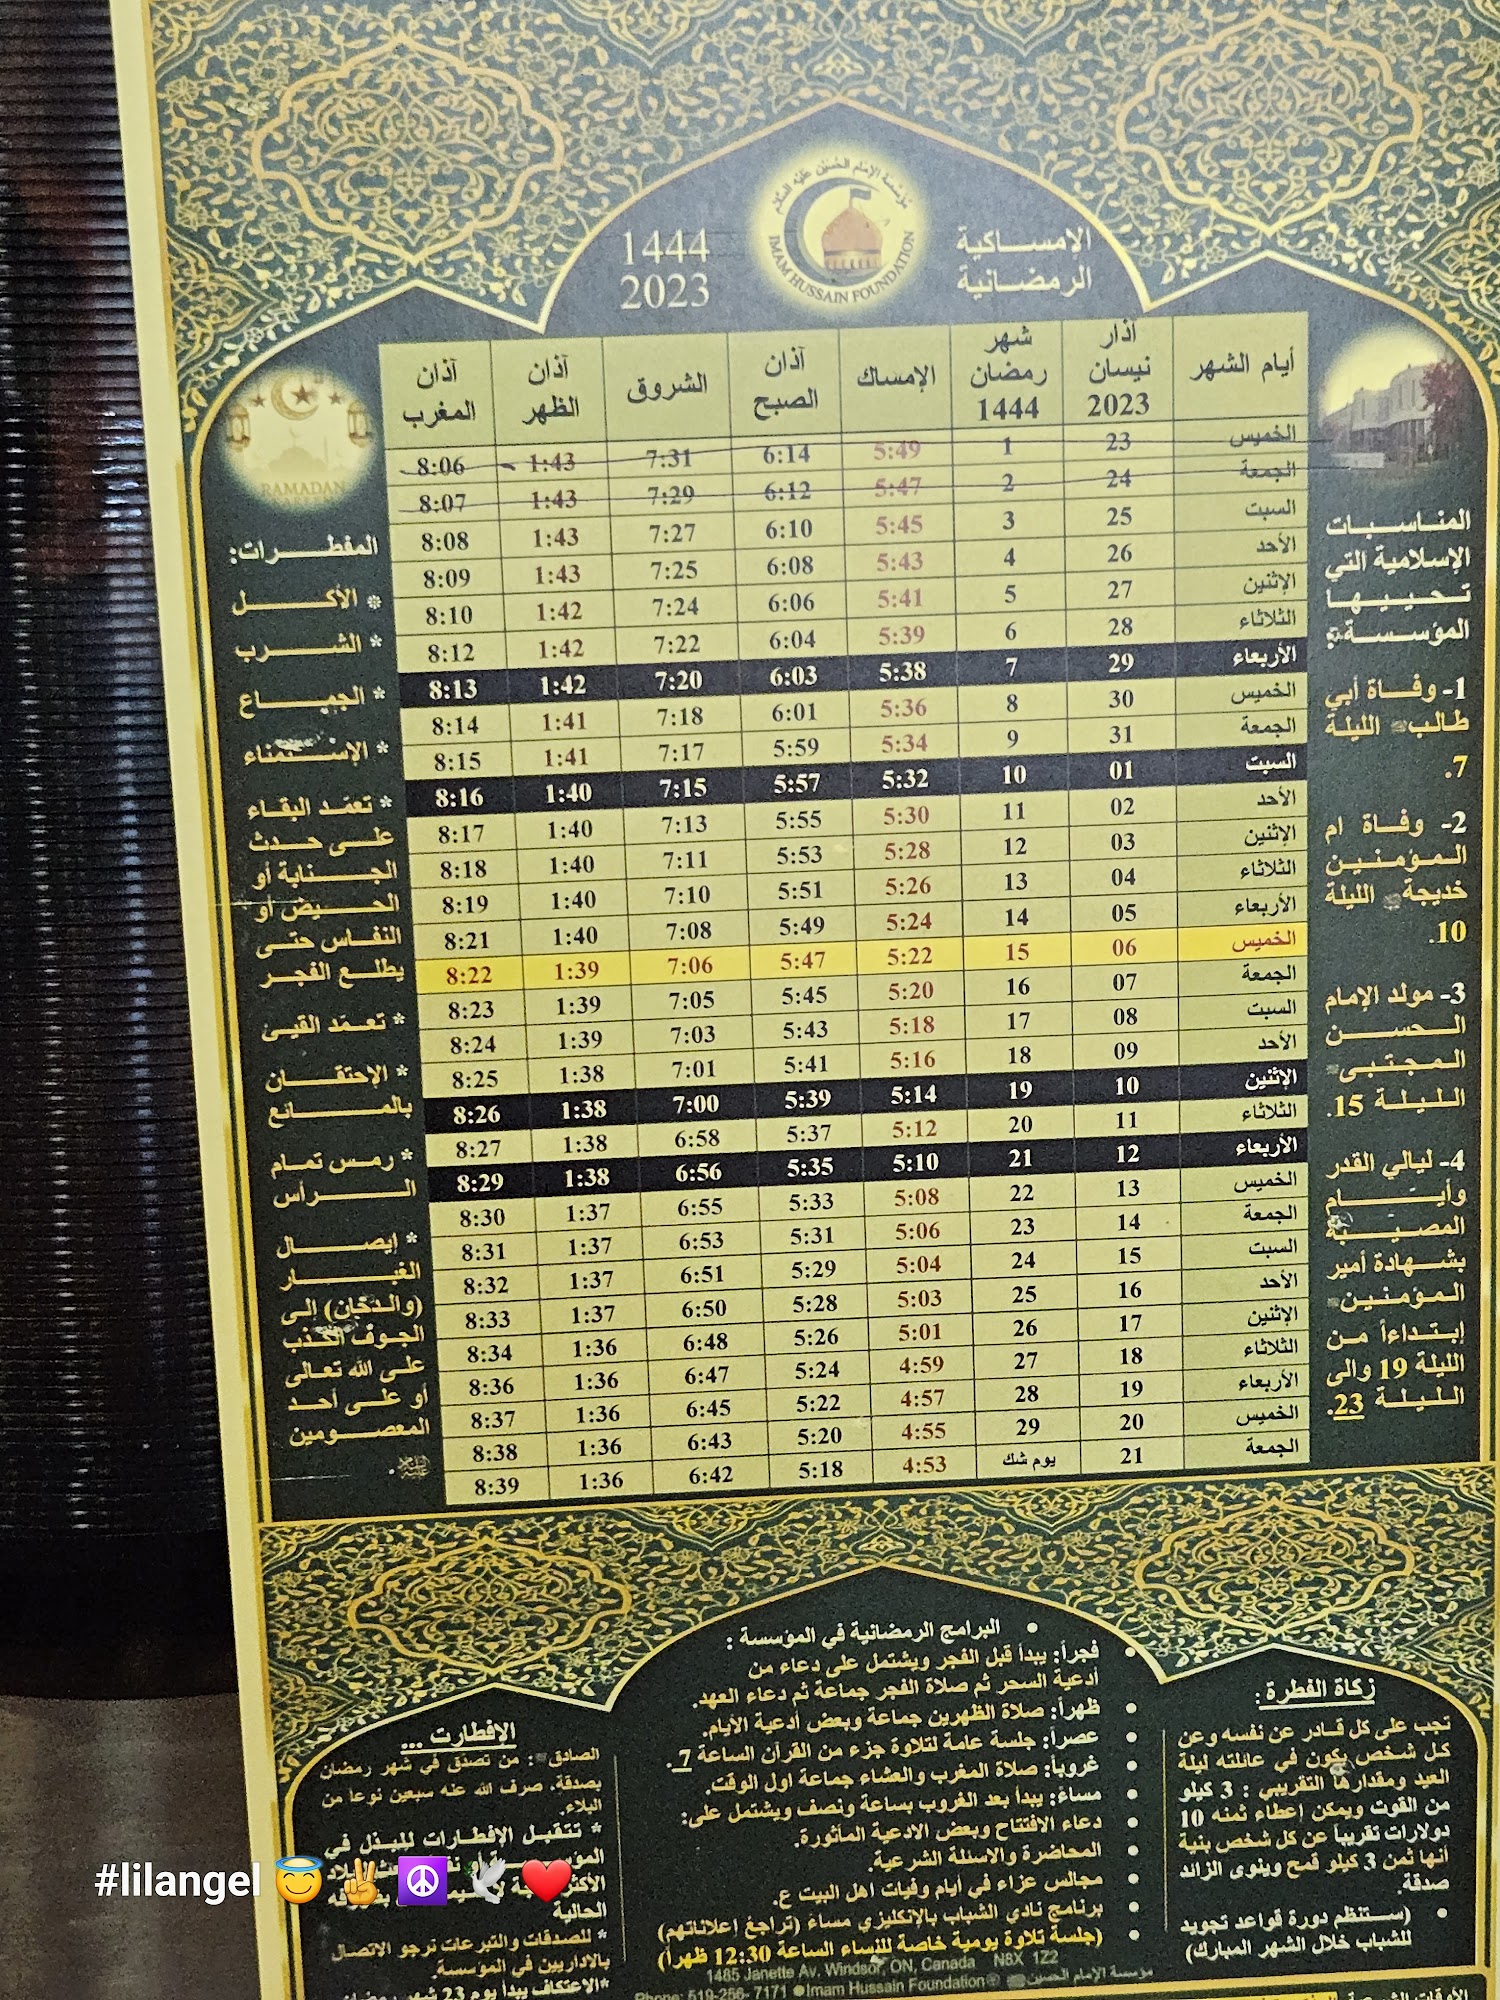 مؤسسة الإمام الحسين عليه السلام
IMAM HUSSAIN FOUNDATION
الإمساكية
الرمضانية
1444
2023
أيام الشهر | آذار نيسان 2023 | شهر رمضان 1444 | الإمساك | آذان الصبح | الشروق | آذان الظهر | آذان المغرب
الخميس 23 1 5:49 6:14 7:31 1:43 8:06
الجمعة 24 2 5:47 6:12 7:29 1:43 8:07
السبت 25 3 5:45 6:10 7:27 1:43 8:08
الأحد 26 4 5:43 6:08 7:25 1:43 8:09
الإثنين 27 5 5:41 6:06 7:24 1:42 8:10
الثلاثاء 28 6 5:39 6:04 7:22 1:42 8:12
الأربعاء 29 7 5:38 6:03 7:20 1:42 8:13
الخميس 30 8 5:36 6:01 7:18 1:41 8:14
الجمعة 31 9 5:34 5:59 7:17 1:41 8:15
السبت 01 10 5:32 5:57 7:15 1:40 8:16
الأحد 02 11 5:30 5:55 7:13 1:40 8:17
الإثنين 03 12 5:28 5:53 7:11 1:40 8:18
الثلاثاء 04 13 5:26 5:51 7:10 1:40 8:19
الأربعاء 05 14 5:24 5:49 7:08 1:40 8:21
الخميس 06 15 5:22 5:47 7:06 1:39 8:22
الجمعة 07 16 5:20 5:45 7:05 1:39 8:23
السبت 08 17 5:18 5:43 7:03 1:39 8:24
الأحد 09 18 5:16 5:41 7:01 1:38 8:25
الإثنين 10 19 5:14 5:39 7:00 1:38 8:26
الثلاثاء 11 20 5:12 5:37 6:58 1:38 8:27
الأربعاء 12 21 5:10 5:35 6:56 1:38 8:29
الخميس 13 22 5:08 5:33 6:55 1:37 8:30
الجمعة 14 23 5:06 5:31 6:53 1:37 8:31
السبت 15 24 5:04 5:29 6:51 1:37 8:32
الأحد 16 25 5:03 5:28 6:50 1:37 8:33
الإثنين 17 26 5:01 5:26 6:48 1:36 8:34
الثلاثاء 18 27 4:59 5:24 6:47 1:36 8:36
الأربعاء 19 28 4:57 5:22 6:45 1:36 8:37
الخميس 20 29 4:55 5:20 6:43 1:36 8:38
الجمعة 21 يوم شك 4:53 5:18 6:42 1:36 8:39
المناسبات
الإسلامية التي
تحييها
المؤسسة:
1- وفاة أبي
طالب الليلة
7.
2- وفاة ام
المؤمنين
خديجة الليلة
10.
3- مولد الإمام
الحسن
المجتبى
الليلة 15.
4- ليالي القدر
وأيام
المصيبة
بشهادة أمير
المؤمنين
إبتداءاً من
الليلة 19 والى
الليلة 23.
RAMADAN
المفطرات:
* الأكل
* الشرب
* الجماع
* الإستمناء
* تعمّد البقاء
على حدث
الجنابة أو
الحيض أو
النفاس حتى
يطلع الفجر
* تعمّد القيئ
* الإحتقان
بالمائع
* رمس تمام
الرأس
* إيصال
الغبار
(والدخان) إلى
الجوف الكذب
على الله تعالى
أو على أحد
المعصومين
زكاة الفطرة:
تجب على كل قادر عن نفسه وعن
كل شخص يكون في عائلته ليلة
العيد ومقدارها التقريبي : 3 كيلو
من القوت ويمكن إعطاء ثمنه 10
دولارات تقريباً عن كل شخص بنية
أنها ثمن 3 كيلو قمح وينوى الزائد
صدقة.
• (ستنظم دورة قواعد تجويد
للشباب خلال الشهر المبارك)
• البرامج الرمضانية في المؤسسة :
• فجراً: يبدأ قبل الفجر ويشتمل على دعاء من
أدعية السحر ثم صلاة الفجر جماعة ثم دعاء العهد.
• ظهراً: صلاة الظهرين جماعة وبعض أدعية الأيام.
• عصراً: جلسة عامة لتلاوة جزء من القرآن الساعة 7.
• غروباً: صلاة المغرب والعشاء جماعة اول الوقت.
• مساءً: يبدأ بعد الغروب بساعة ونصف ويشتمل على:
• دعاء الافتتاح وبعض الادعية المأثورة.
• المحاضرة والاسئلة الشرعية.
• مجالس عزاء في أيام وفيات اهل البيت ع.
• برنامج نادي الشباب بالإنكليزي مساءً (تراجع إعلاناتهم)
• (جلسة تلاوة يومية خاصة للنساء الساعة 12:30 ظهراً)
1485 Janette Av, Windsor, ON, Canada N8X 1Z2
Phone: 519-256-7171 Imam Hussain Foundation مؤسسة الإمام الحسين
الإفطارت ...
الصادق : من تصدق في شهر رمضان
بصدقة، صرف الله عنه سبعين نوعا من
البلاء.
* تتقبل الإفطارات للبذل في
الحالية
* للصدقات والتبرعات نرجو الاتصال
بالاداريين في المؤسسة.
*الاعتكاف يبدأ يوم 23 شهر رمضان
#lilangel 😇 ✌️ ☮️ 🕊️ ❤️